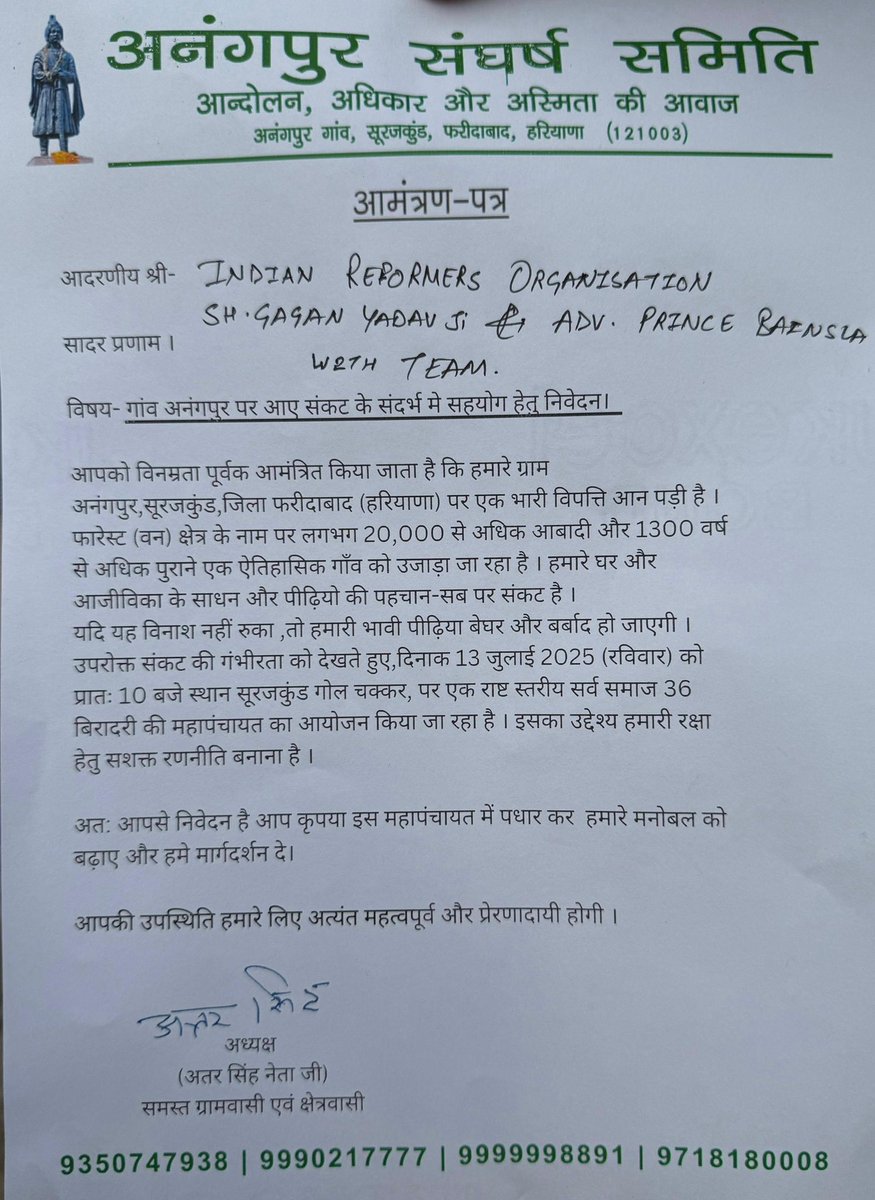 अनंगपुर संघर्ष समिति
आन्दोलन, अधिकार और अस्मिता की आवाज
अनंगपुर गांव, सूरजकुंड, फरीदाबाद, हरियाणा (121003)
आमंत्रण-पत्र
आदरणीय श्री- INDIAN REFORMERS ORGANISATION
SH. GAGAN YADAV Ji & ADV. PRINCE BAINSLA
सादर प्रणाम ।
WITH TEAM.
विषय- गांव अनंगपुर पर आए संकट के संदर्भ मे सहयोग हेतु निवेदन।
आपको विनम्रता पूर्वक आमंत्रित किया जाता है कि हमारे ग्राम
अनंगपुर,सूरजकुंड,जिला फरीदाबाद (हरियाणा) पर एक भारी विपत्ति आन पड़ी है ।
फारेस्ट (वन) क्षेत्र के नाम पर लगभग 20,000 से अधिक आबादी और 1300 वर्ष
से अधिक पुराने एक ऐतिहासिक गाँव को उजाड़ा जा रहा है । हमारे घर और
आजीविका के साधन और पीढ़ियो की पहचान-सब पर संकट है ।
यदि यह विनाश नहीं रुका ,तो हमारी भावी पीढ़िया बेघर और बर्बाद हो जाएगी ।
उपरोक्त संकट की गंभीरता को देखते हुए,दिनाक 13 जुलाई 2025 (रविवार) को
प्रातः 10 बजे स्थान सूरजकुंड गोल चक्कर, पर एक राष्ट स्तरीय सर्व समाज 36
बिरादरी की महापंचायत का आयोजन किया जा रहा है । इसका उद्देश्य हमारी रक्षा
हेतु सशक्त रणनीति बनाना है ।
अत: आपसे निवेदन है आप कृपया इस महापंचायत में पधार कर हमारे मनोबल को
बढ़ाए और हमे मार्गदर्शन दे।
आपकी उपस्थिति हमारे लिए अत्यंत महत्वपूर्व और प्रेरणादायी होगी ।
अतर सिंह
अध्यक्ष
(अतर सिंह नेता जी)
समस्त ग्रामवासी एवं क्षेत्रवासी
9350747938 | 9990217777 | 9999998891 | 9718180008